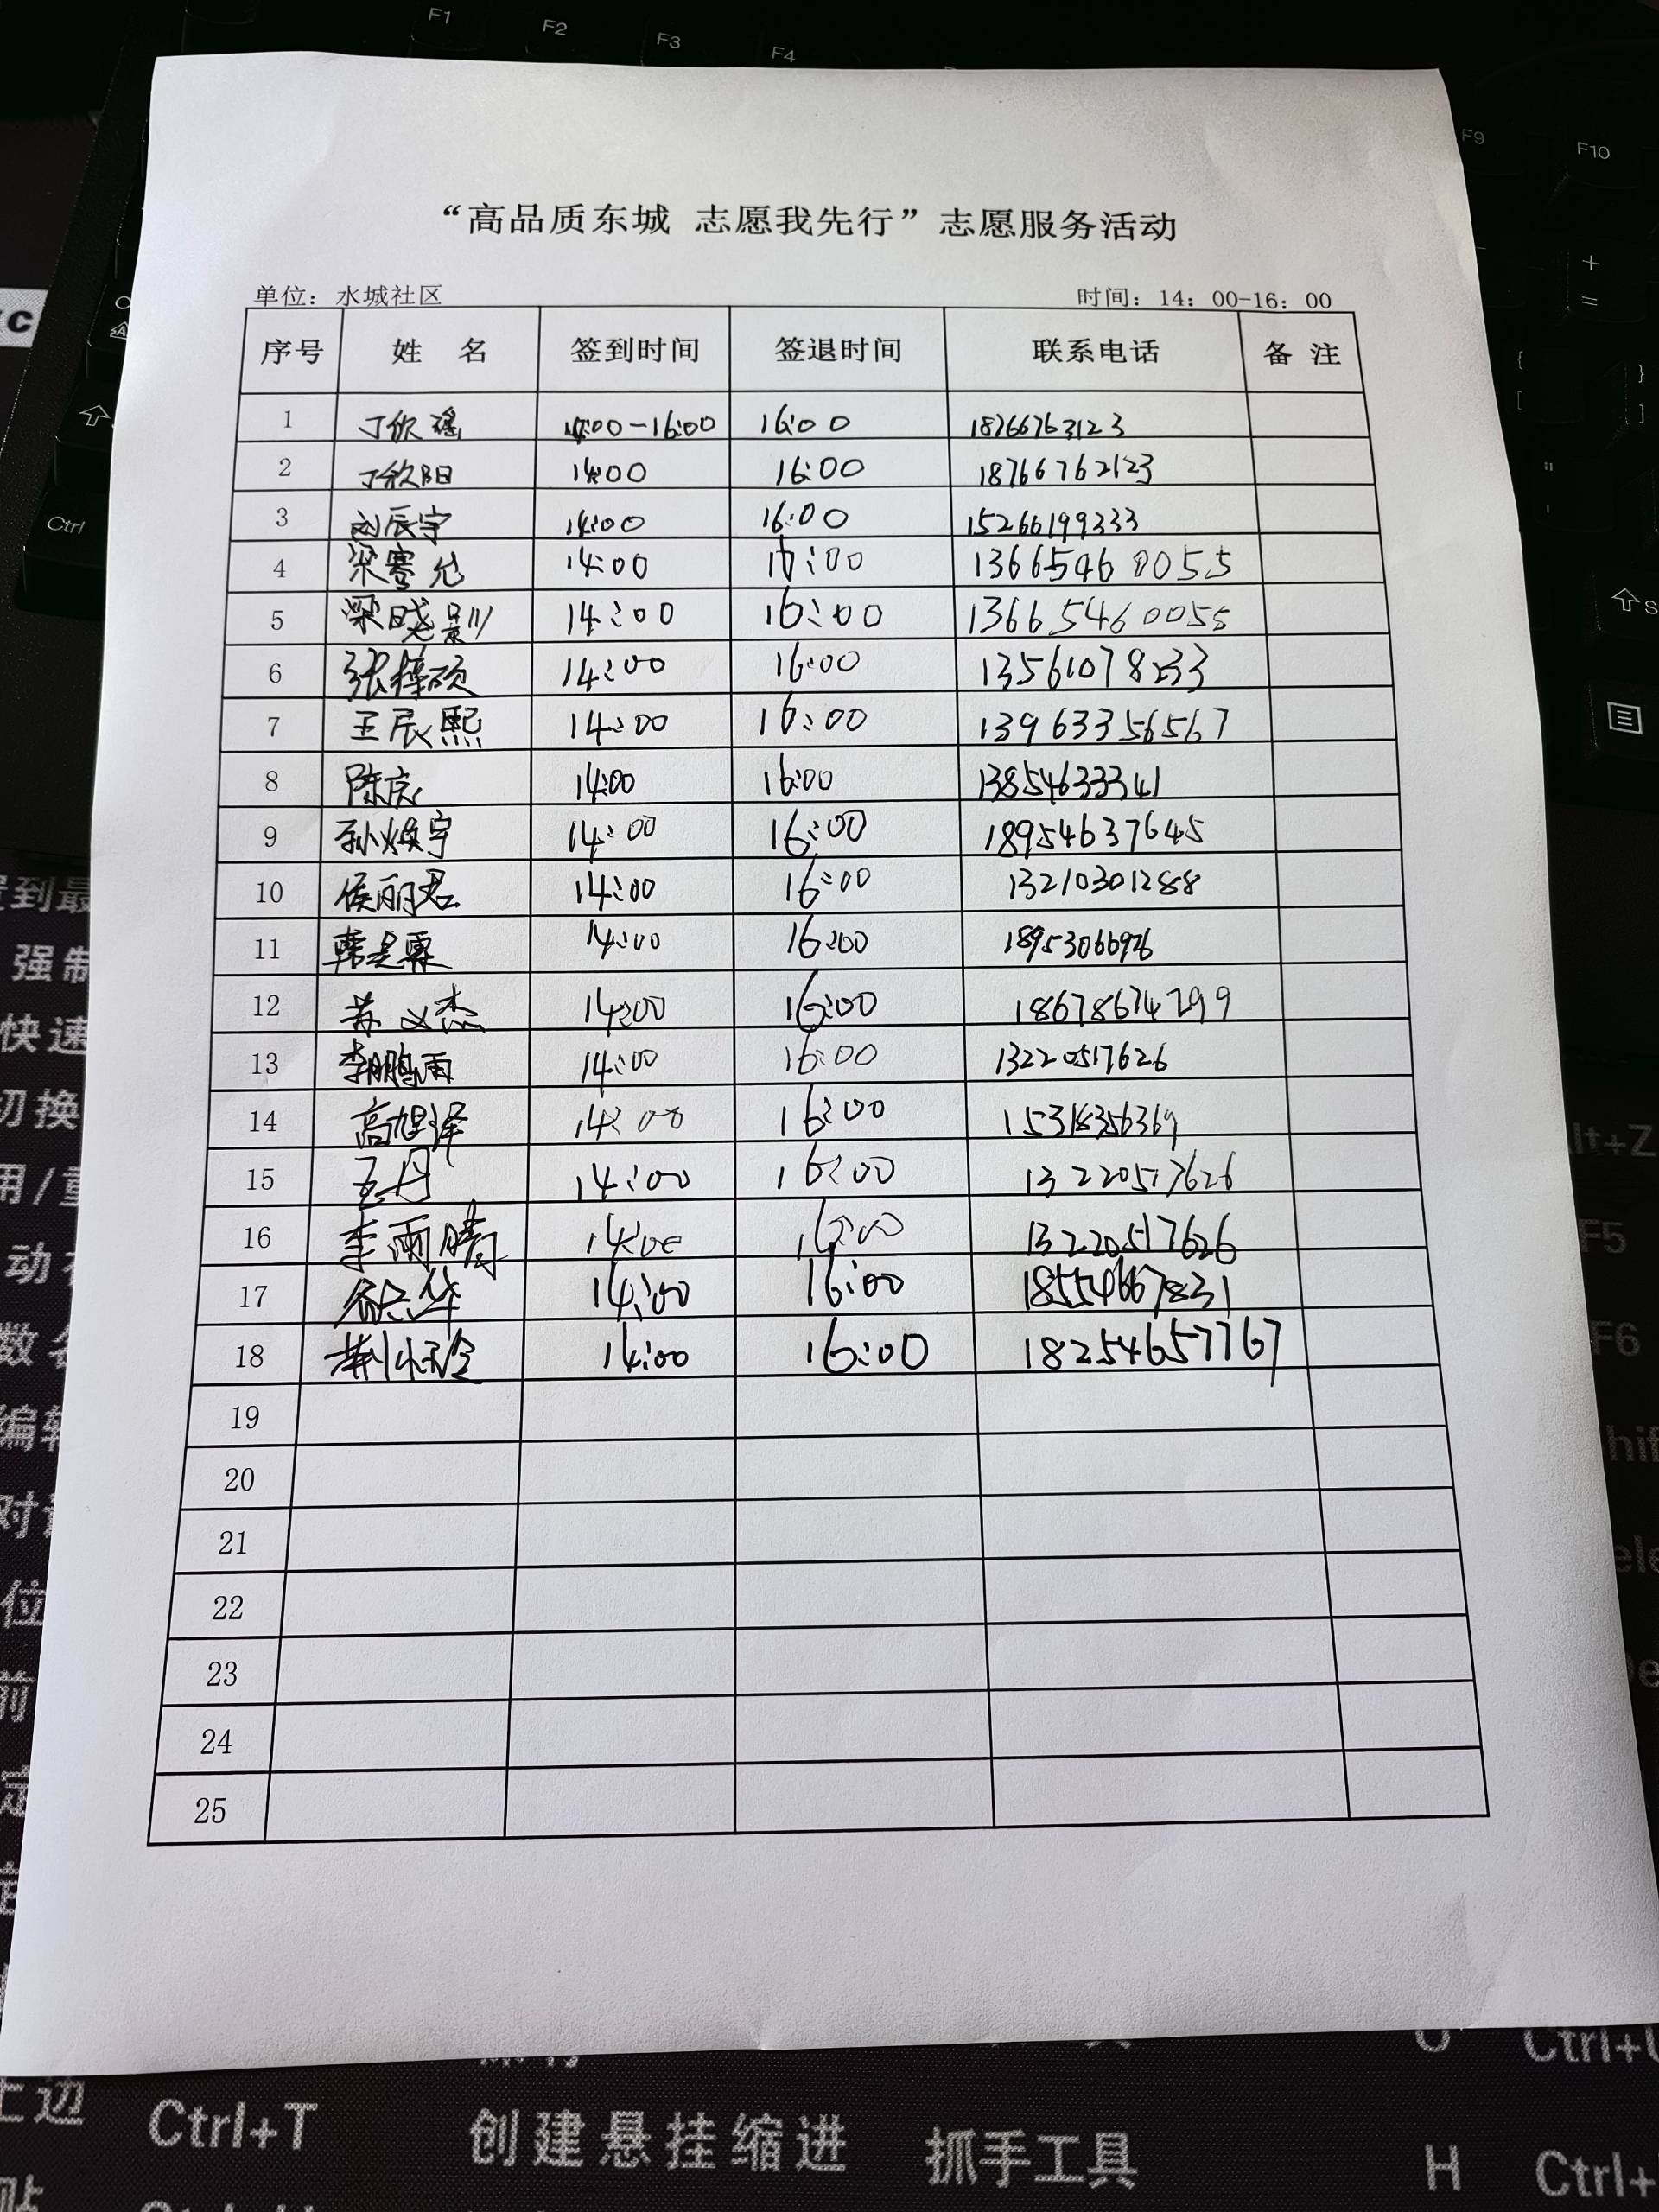 F1 F2 F3 F4
F9 F10
“高品质东城 志愿我先行”志愿服务活动
单位：水城社区 时间：14：00-16：00
序号 姓 名 签到时间 签退时间 联系电话 备 注
1 丁欣瑶 14:00-16:00 16:00 18766763123
2 丁欣阳 14:00 16:00 18766762123
3 刘辰宇 14:00 16:00 15266199333
4 梁骞允 14:00 16:00 13665460055
5 梁晓影 14:00 16:00 13665460055
6 张梓硕 14:00 16:00 13561078233
7 王辰熙 14:00 16:00 13963356567
8 陈 14:00 16:00 13854633341
9 孙焕宇 14:00 16:00 18954637645
10 侯丽君 14:00 16:00 13210301288
11 韩昊霖 14:00 16:00
12 苏义杰 14:00 16:00 18678674799
13 李鹏雨 14:00 16:00 13220517626
14 高旭泽 14:00 16:00 15318356369
15 14:00 16:00 13220517626
16 李雨晴 14:00 16:00 13220517626
17 14:00 16:00 18554667831
18 14:00 16:00 18254657767
19
20
21
22
23
24
25
Ctrl
Ctrl+T 创建悬挂缩进 抓手工具 H